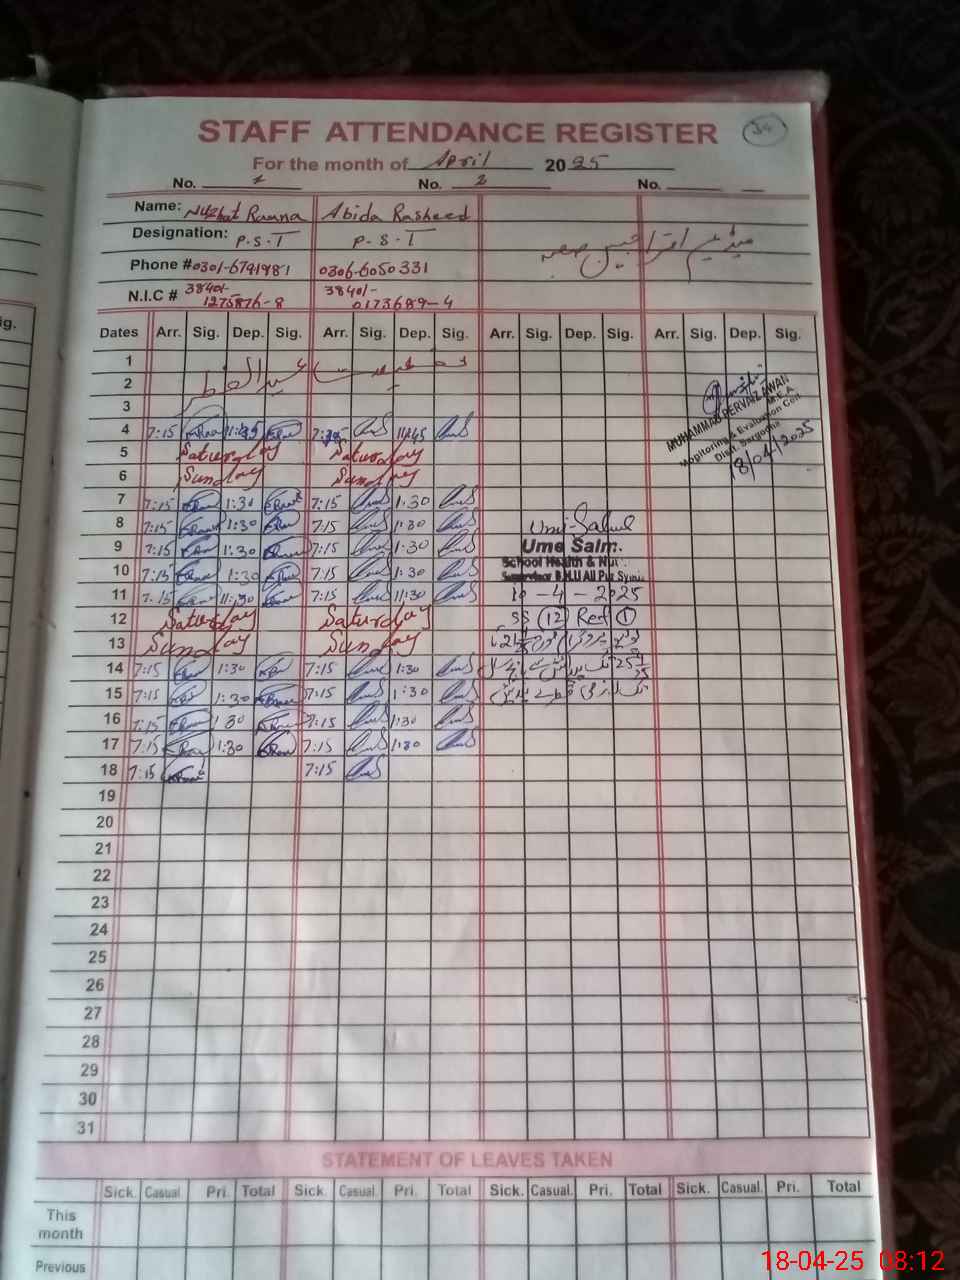 STAFF ATTENDANCE REGISTER
For the month of April 2025
No. 1 No. 2 No.
Name: Nuzhat Raana Abida Rasheed
Designation: P.S.T P.S.T
Phone # 0301-6791981 0306-6050331
N.I.C # 38401-1275876-8 38401-0173689-4
Dates Arr. Sig. Dep. Sig. Arr. Sig. Dep. Sig. Arr. Sig. Dep. Sig. Arr. Sig. Dep. Sig.
1 تعطیلات عید الفطر
2
3
4 7:15 11:45 11:45
5 Saturday Saturday
6 Sunday Sunday
7 7:15 1:30 7:15 1:30
8 7:15 1:30 7:15 1:30
9 7:15 1:30 7:15 1:30
10 7:15 1:30 7:15 1:30
11 7:15 11:30 7:15 11:30
12 Saturday Saturday
13 Sunday Sunday
14 7:15 1:30 7:15 1:30
15 7:15 1:30 7:15 1:30
16 7:15 1:30 7:15 1:30
17 7:15 1:30 7:15 1:30
18 7:15 7:15
19
20
21
22
23
24
25
26
27
28
29
30
31
MUHAMMAD PERVAIZ AWAN
M.E.A
Monitoring & Evaluation Cell
Distt. Sargodha
18/04/2025
Ume Salm
School Health & Nut
Supervisor B.H.U Ali Pur Syed
10-4-2025
SS 12 Ref 1
STATEMENT OF LEAVES TAKEN
Sick. Casual. Pri. Total Sick. Casual. Pri. Total Sick. Casual. Pri. Total Sick. Casual. Pri. Total
This month
Previous
18-04-25 08:12